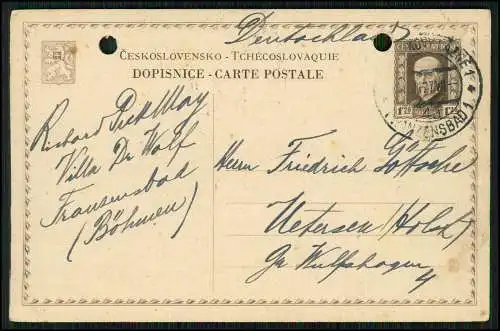 Deutschland
ČESKOSLOVENSKO - TCHÉCOSLOVAQUIE
DOPISNICE - CARTE POSTALE
FRANZENSBAD 1
Richard Pick May
Villa Dr Wolf
Fransensbad
(Böhmen)
Herrn Friedrich
Uetersen (Holst)
Gr Wulfhagen
4